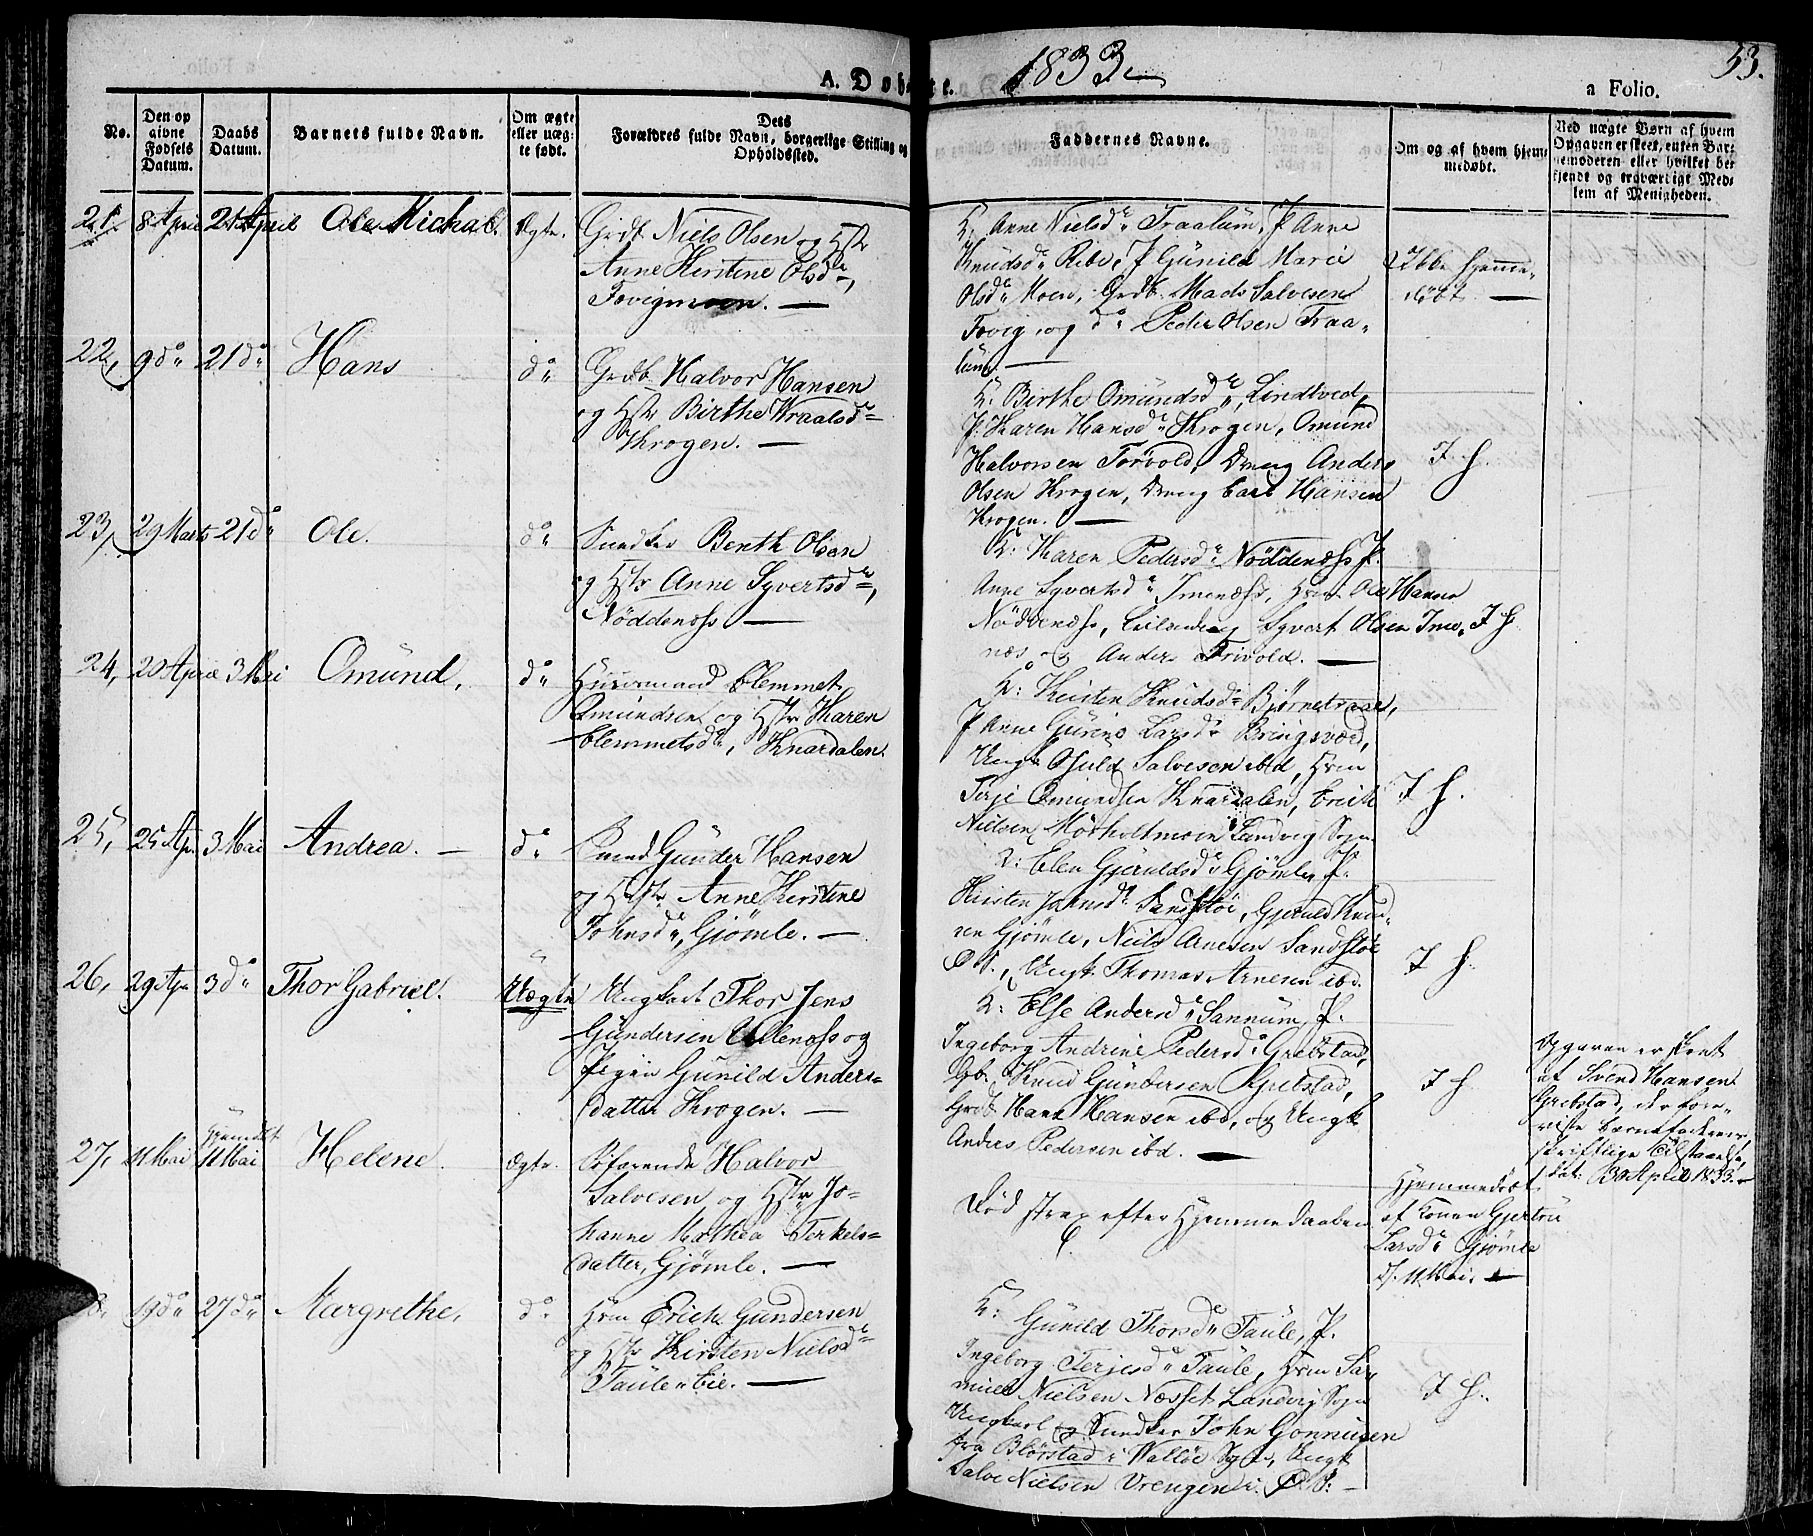 1833
53.
A. Døbte.
a Folio.
No.
Den op
givne
Fødsels
Datum.
Daabs
Datum.
Barnets fulde Navn.
Om ægte
eller uæg-
te født.
Dets
Forældres fulde Navn, borgerlige Stilling og
Opholdssted.
Faddernes Navne.
Om og af hvem hjem-
medøbt.
Ved uægte Børn af hvem
Opgaven er skeet, enten Bar-
nemoderen eller hvilket be-
kjendt og troværdigt Med-
lem af Menigheden.
21, 8 April 21 April Ole Michal. Ægte.
Niels Olsen og Hstr
Anne Kirstine Olsd.,
Fevigmoen. —
K: Anne Nielsd. Traalum, P Anne
Knudsd. Ribe, P Gunild Marie
Olsd. Moen, Grdb. Mads Salvesen
Fevig, og do Peder Olsen Traa-
lum —
Ikke hjemme-
døbt. —
22, 9 do 21 do Hans do
Grdb. Halvor Hansen
og Hstr Birthe Wraalsd.
Krogen. —
K: Birthe Omundsd., Lindtved,
P: Karen Hansd. Krogen, Omund
Halvorsen Torvold, Dreng Anders
Olsen Krogen, Dreng Carl Hansen
Krogen. —
I H.
23, 29 Marts 21 do Ole. do
Berth Olsen
og Hstr Anne Syvertsd.,
Nöddenæss —
K: Karen Pedersd. Nöddenæss P.
Anne Syvertsd. Imenæss, Hrm Ole Hansen
Nöddenæss, Syvert Olsen Ime-
næs og Anders Trivold. —
I H.
24, 20 April 3 Mai Omund, do
Huusmand Clemmet
Omundsen og Hstr Karen
Clemmetsd., Knardalen.
K: Kirsten Knudsd. Bjørnetraae,
P Anne Gurine Larsd. Bringsværd,
Ungk Osuld Salvesen ibd, Hrm
Terje Omundsen Knardalen, Erick
Nielsen Mörholtmoen Landvig Sogn
I H.
25, 25 Apr 3 Mai Andrea. — do
Gunder Hansen
og Hstr Anne Kirstine
Johnsd., Gjömle. —
K: Elen Gjeruldsd. Gjömle, P.
Kirsten Johnsd. Sandstöe, Gjeruld Knud-
sen Gjömle, Niels Arnesen Sandstöe
Ø S., Ungk: Thomas Arnesen ibd.
I H.
26, 29 Apr 3 do Thor Gabriel. Uægte
Ungkarl Thor Jens
Gundersen Ullenæss og
Pigen Gunild Anders-
datter Krogen. —
K: Else Andersd. Sannum, P.
Ingeborg Andrine Pedersd. Grebstad,
Gb. Knud Gundersen Grebstad,
Grdb. Hans Hansen ibd, og Ungk
Anders Pedersen ibd. —
I H.
Opgaven er skeet
af Svend Hansen
Grebstad, der fore-
viste barnefaderens
skriftlige Tilstaaelse,
dat: 30 April 1833.
27, 11 Mai Hjemdöbt 11 Mai Helene. Ægte.
Söfarende Halvor
Salvesen og Hstr Jo-
hanne Mathea Terkels-
datter, Gjömle. —
Död strax efter Hjemmedaaben
Hjemmedöbt
af Konen Gjertru
Larsd. Gjömle
d. 11 Mai. —
28. 19 do 27 do Margrethe, do
Hrm Erick Gundersen
og Hstr Kirsten Nielsd.
Taule Eie. —
K:
Gunild Thorsd. Taule, P.
Ingeborg Terjesd. Taule, Hrm Sa-
muel Nielsen Næsset Landvig Sogn
Ungkarl og John Gonnusen
fra Blörstad i Walløe Sogn, Ungk
Salve Nielsen Vrengen i Ø. S: —
I H.